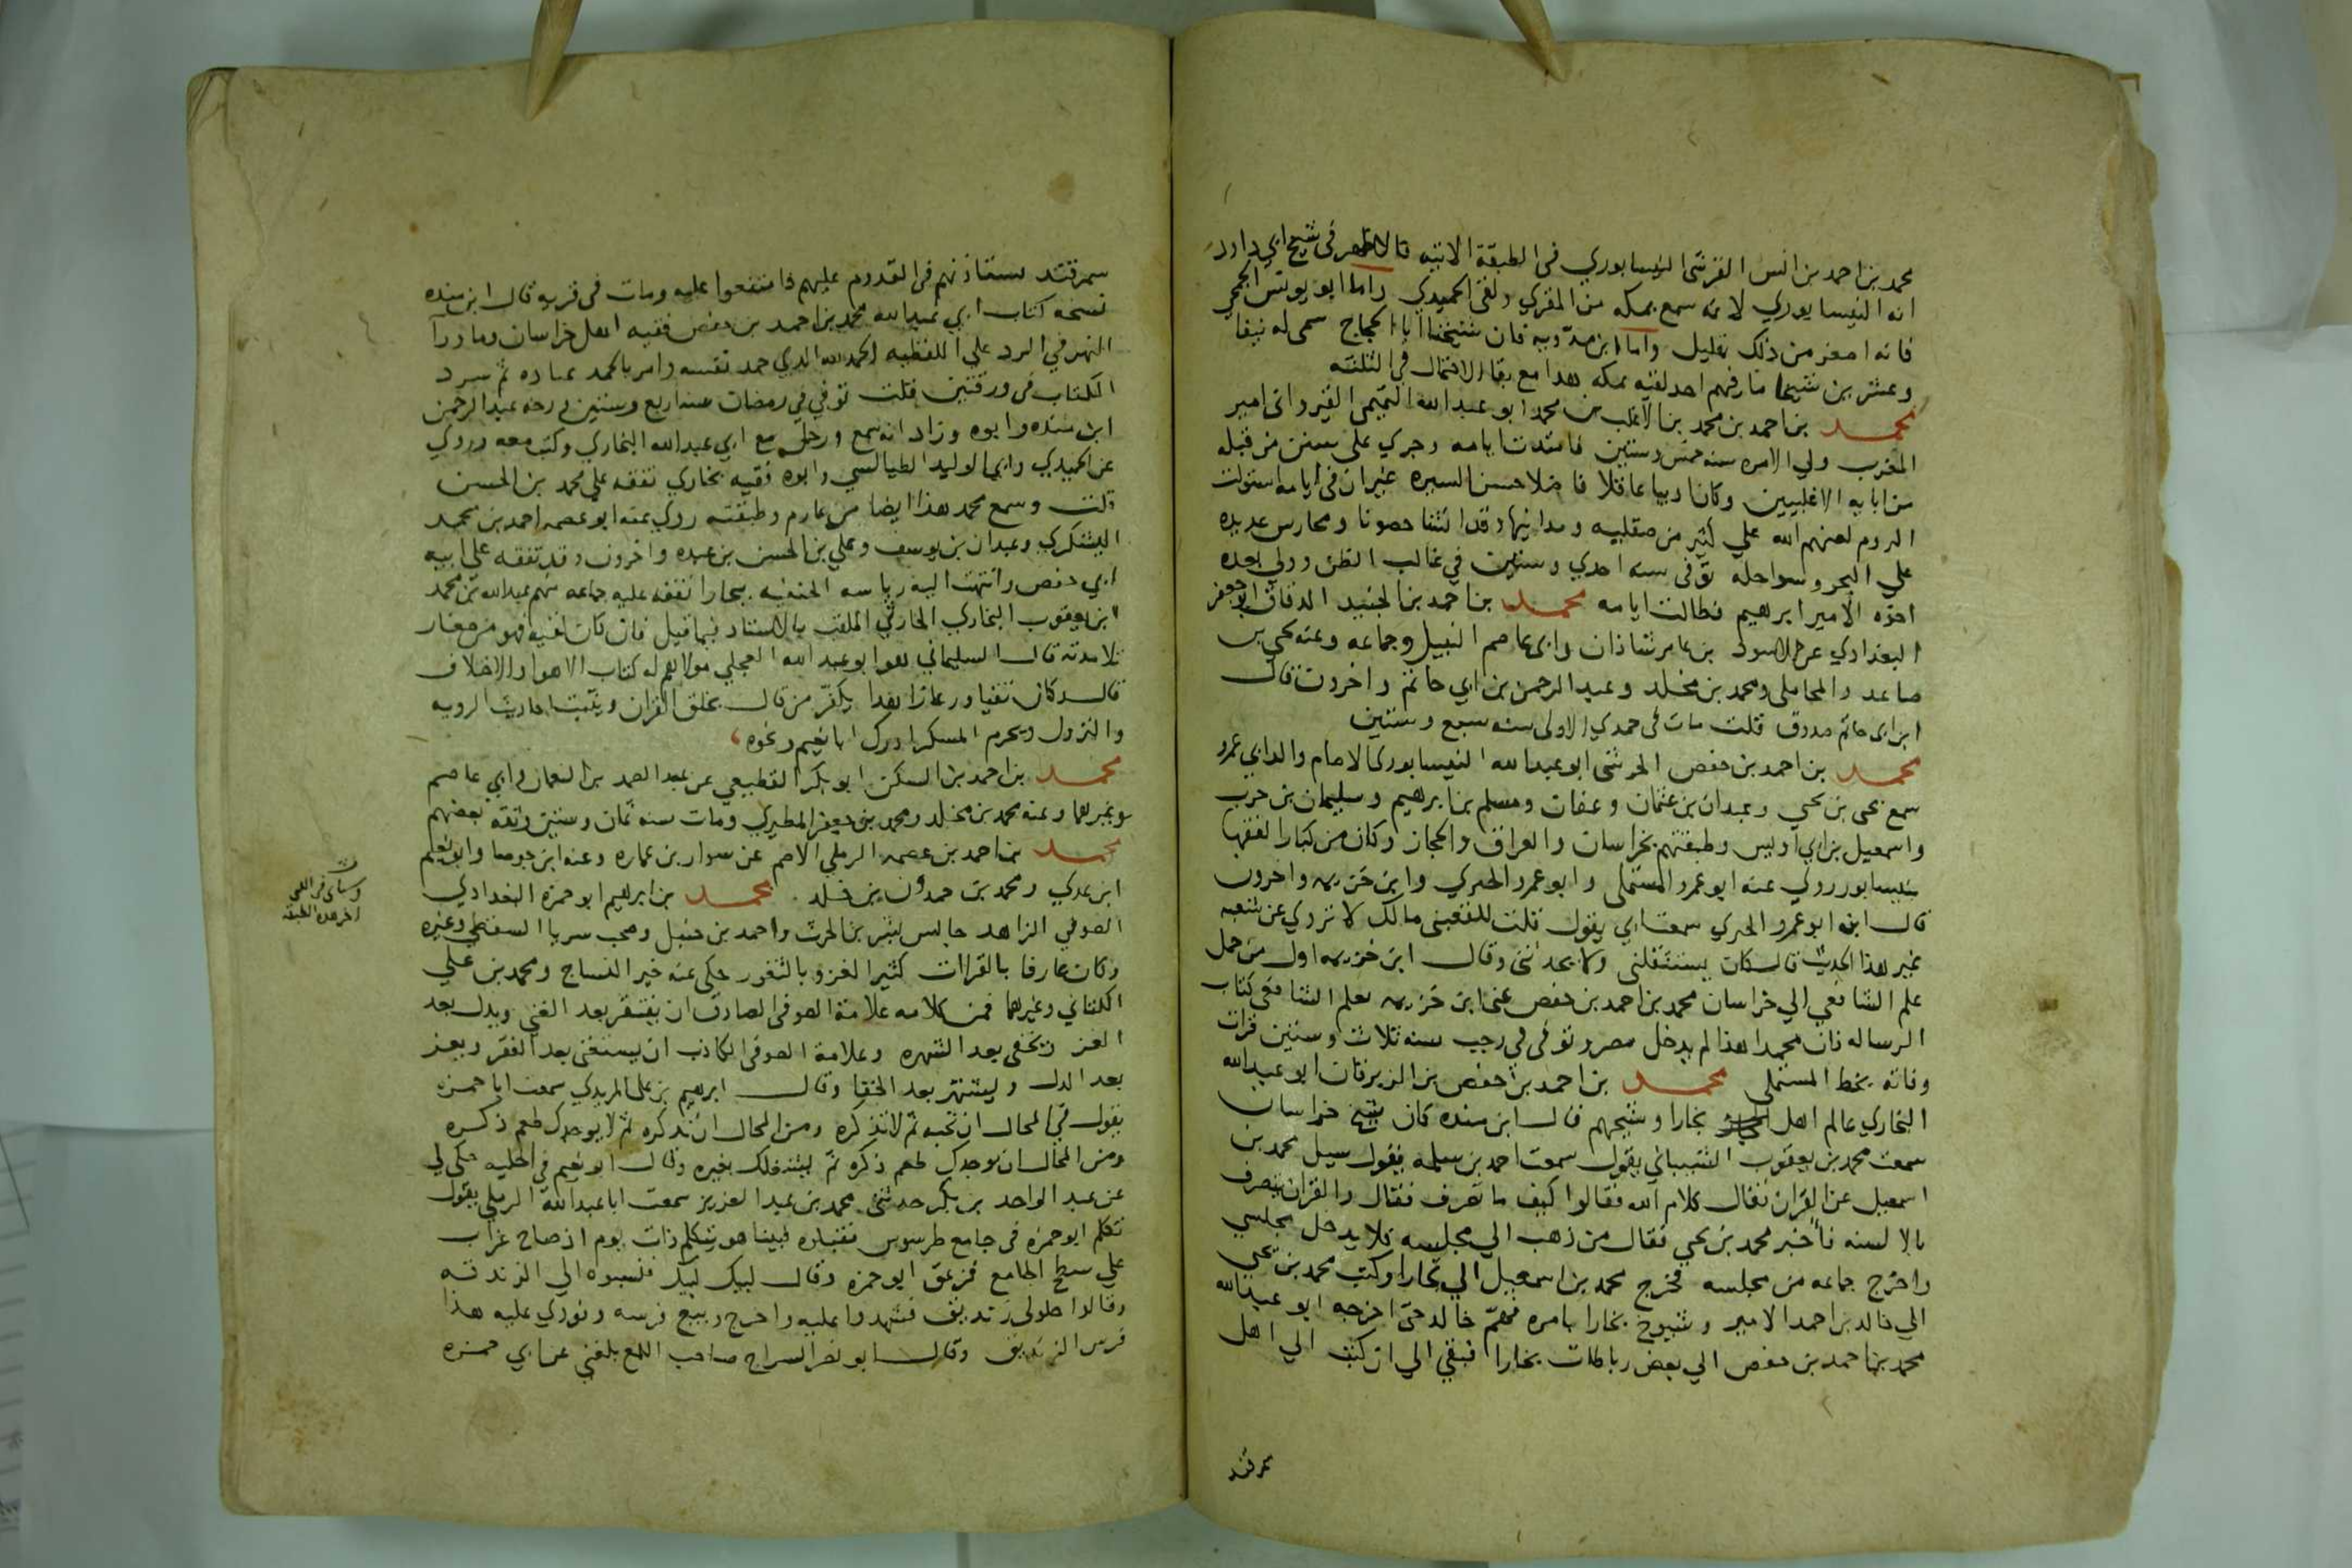 محمد بن احمد بن انس القرشي النيسابوري في الطبقة الاتيه قال في شيخ ابي داود
انه النيسابوري لانه سمع بمكه من المقري ولقي الحميدي واما ابو يونس الجمحي
فانه اصغر من ذلك بقليل واما ابن مدويه فان شيخنا ابا الحجاج سمى له نيفا
وعشرين شيخا ما فيهم احد لقيه بمكه هذا مع بقا الاحتمال في الثلثه
محمد بن احمد بن محمد بن الاغلب بن محمد ابو عبد الله التميمي القيرواني امير
المغرب ولي الامره سنه خمس وستين فامتدت ايامه وجري على سنن من قبله
من ابايه الاغلبيين وكان اديبا عاقلا فاضلا حسن السيره غير ان في ايامه استولت
الروم لعنهم الله علي كثير من صقليه ومداينها وقد انشا حصونا ومحارس عديده
علي البحر وسواحله توفى سنه احدي وستين في غالب الظن وولي بعده
اخوه الامير ابرهيم فطالت ايامه محمد بن احمد بن الجنيد الدقاق ابو جعفر
البغدادي عن الاسود بن عامر شاذان وابي عاصم النبيل وجماعه وعنه يحيى بن
صاعد والمحاملي ومحمد بن مخلد وعبد الرحمن بن ابي حاتم واخرون قال
ابن ابي حاتم صدوق قلت مات في جمدي الاولى سنه سبع وستين
محمد بن احمد بن حفص الحرشي ابو عبد الله النيسابوري الامام والد ابي عمرو
سمع يحي بن يحيي وعبدان بن عثمان وعفان ومسلم بن ابرهيم وسليمان بن حرب
واسمعيل بن ابي اويس وطبقتهم بخراسان والعراق والحجاز وكان من كبار الفقها
بنيسابور روي عنه ابو عمرو المستملي وابو عمرو الحيري وابن خزيمه واخرون
قال ابنه ابو عمرو الحيري سمعت ابي يقول قلت للقعنبي مالك لا تروي عن شعبه
غير هذا الحديث قال كان يستثقلني ولا يحدثني وقال ابن خزيمه اول من حمل
علم الشافعي الي خراسان محمد بن احمد بن حفص عنى ابن خزيمه بعلم الشافعي كتاب
الرساله فان محمدا هذا لم يدخل مصر وتوفى في رجب سنه ثلاث وستين قرات
وفاته بخط المستملي محمد بن احمد بن حفص بن الزبرقان ابو عبد الله
البخاري عالم اهل بخارا وشيخهم قال ابن منده كان شيخ خراسان
سمعت محمد بن يعقوب الشيباني يقول سمعت احمد بن سلمه يقول سيل محمد بن
اسمعيل عن القران فقال كلام الله فقالوا كيف ما تصرف فقال والقران يتصرف
بالالسنه فاخبر محمد بن يحيي فقال من ذهب الي مجلسه فلا يدخل مجلسي
واخرج جماعه من مجلسه فخرج محمد بن اسمعيل الي بخارا وكتب محمد بن يحيي
الي خالد بن احمد الامير وشيوخ بخارا بامره فهم خالد حتى اخرجه ابو عبد الله
محمد بن احمد بن حفص الي بعض رباطات بخارا فبقي الي ان كتب الي اهل
سمرقند
سمرقند يستاذنهم في القدوم عليهم فامتنعوا عليه ومات في قريه قال ابن منده
نسخه كتاب ابي عبد الله محمد بن احمد بن حفص فقيه اهل خراسان وما ورآ
النهر في الرد علي اللفظيه الحمد لله الذي حمد نفسه وامر بالحمد عباده ثم سرد
الكتاب في ورقتين قلت توفي في رمضان سنه اربع وستين ورخه عبد الرحمن
ابن منده وابوه وزاد انه سمع ورحل مع ابي عبد الله البخاري وكتب معه وروي
عن الحميدي وابي الوليد الطيالسي وابوه فقيه بخاري تفقه علي محمد بن الحسن
قلت وسمع محمد هذا ايضا من عارم وطبقته روي عنه ابو عصمه احمد بن محمد
اليشكري وعبدان بن يوسف وعلي بن الحسن بن عبده واخرون وقد تفقه علي ابيه
ابي حفص وانتهت اليه رياسه الحنفيه ببخارا تفقه عليه جماعه منهم عبد الله بن محمد
ابن يعقوب البخاري الحارثي الملقب بالاستاد فيما قيل فان كان لقيه فهو من صغار
تلامدته قال السليماني هو ابو عبد الله العجلي مولاهم له كتاب الاهوا والاختلاف
قال وكان ثقة ورعا زاهدا يكفر من قال بخلق القران ويثبت احاديث الرويه
والنزول ويحرم المسكر ادرك ابا نعيم ونحوه
محمد بن احمد بن السكن ابو بكر القطيعي عن عبد الصمد بن النعمان وابي عاصم
وغيرهما وعنه محمد بن مخلد ومحمد بن جعفر المطيري ومات سنه ثمان وستين وثقه بعضهم
محمد بن احمد بن عصمه الرملي الاصم عن سوار بن عماره وعنه ابن جوصا وابو نعيم
ابن عدي ومحمد بن حمدون بن خلد محمد بن ابرهيم ابو حمزه البغدادي
الصوفي الزاهد جالس بشر بن الحرث واحمد بن حنبل وصحب سريا السقطي وغيره
وكان عارفا بالقراات كثير الغزو بالثغور حكى عنه خير النساج ومحمد بن علي
الكتاني وغيرهما فمن كلامه علامة الصوفي الصادق ان يفتقر بعد الغني ويدل بعد
العز ويخفى بعد الشهره وعلامة الصوفي الكاذب ان يستغنى بعد الفقر ويعز
بعد الدل ويشتهر بعد الخفا وقال ابرهيم بن على المريدي سمعت ابا حمزه
يقول في المحال ان تحبه ثم لا تذكره ومن المحال ان تذكره ثم لا يوجدك طعم ذكره
ومن المحال ان يوجدك طعم ذكره ثم يشغلك بغيره وقال ابو نعيم في الحليه حكي لي
عن عبد الواحد بن بكر حدثني محمد بن عبد العزيز سمعت ابا عبد الله الرملي يقول
تكلم ابو حمزه في جامع طرسوس فقبلوه فبينا هو يتكلم ذات يوم اذ صاح غراب
علي سطح الجامع فزعق ابو حمزه وقال لبيك لبيك فنسبوه الي الزندقه
وقالوا حلولي زنديق فشهدوا عليه واخرج وبيع فرسه ونودي عليه هذا
فرس الزنديق وقال ابو نصر السراج صاحب اللمع بلغني عن ابي حمزه
اخر هده الطبقه